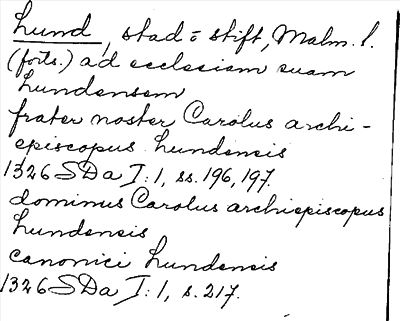 Lund, stad = stift, Malm. l.
(forts.) ad ecclesiam suam
Lundensem
frater noster Carolus archi-
episcopus Lundensis
1326 SDa I:1, ss. 196, 197.
dominus Carolus archiepiscopus
Lundensis
canonici Lundensis
1326 SDa I:1, s. 217.